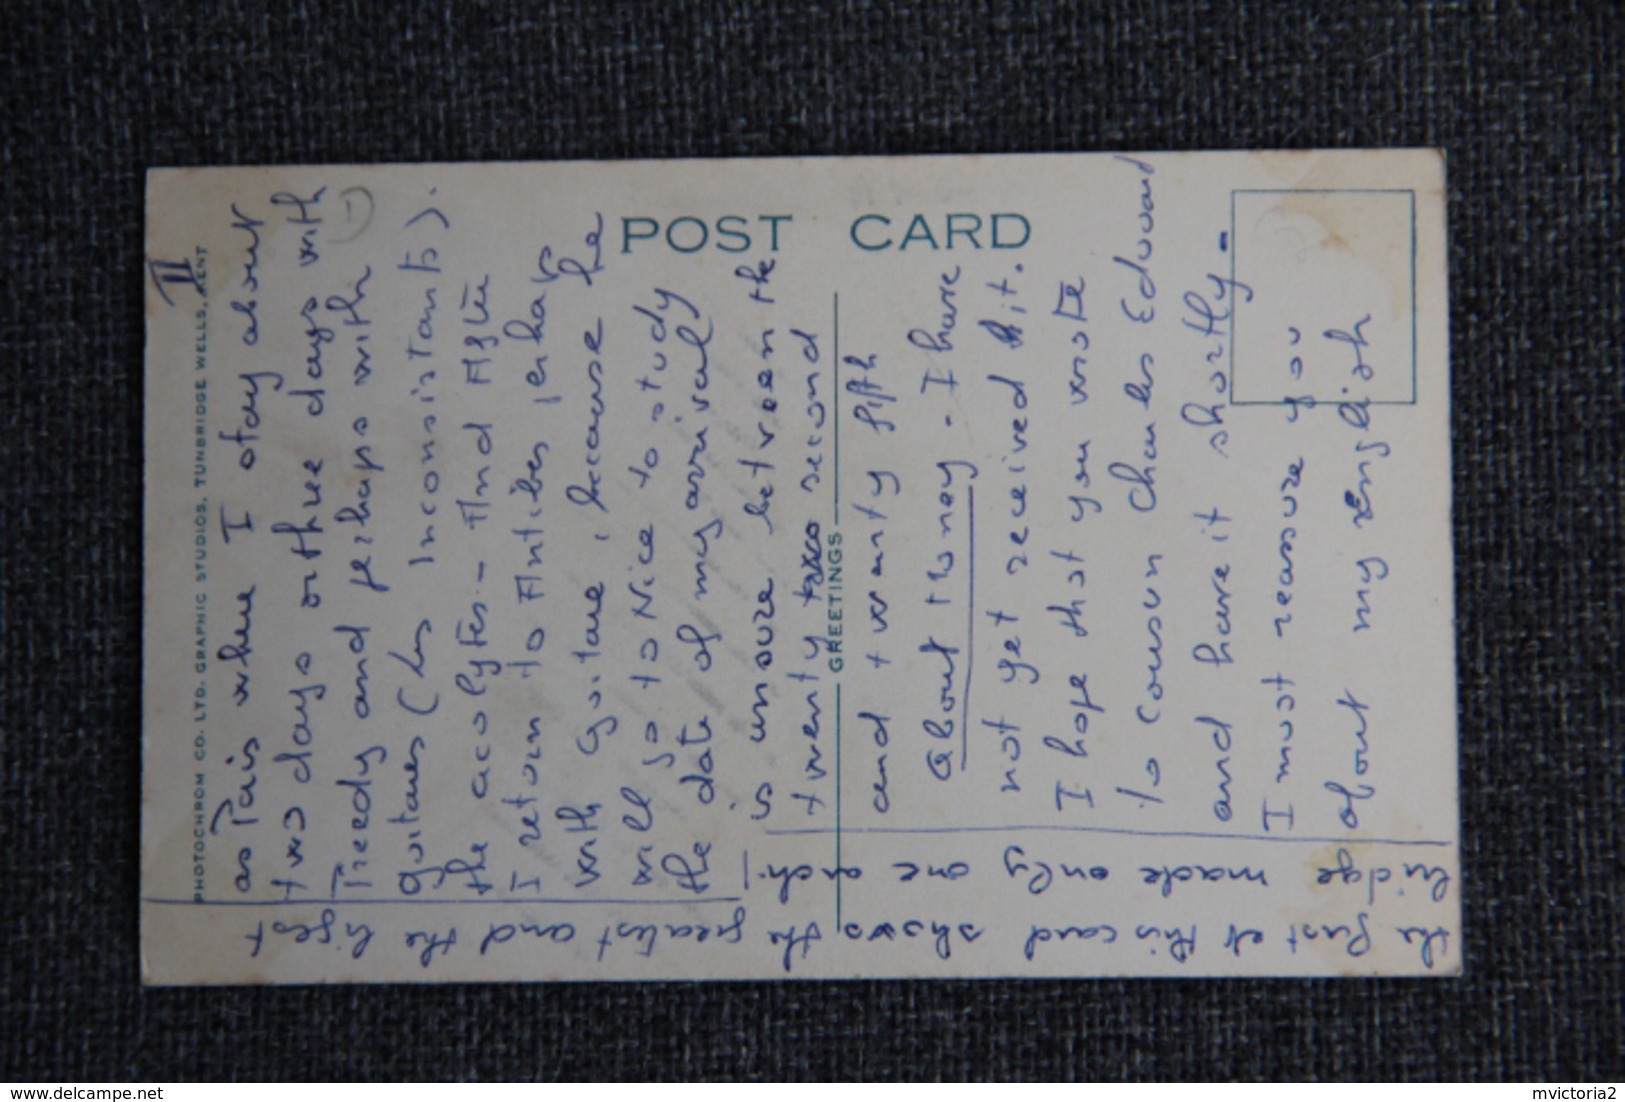 II
as Paris where I stay about
two days or three days with
Freedy and perhaps with
guitares (les Inconsistants).
the acolytes - And
I return to Antibes perhaps
with Guitare, because he
will go to Nice to study
the date of my arrival
is unsure between the
twenty second
and twenty fifth
About Money - I have
not yet received it.
I hope that you wrote
to cousin Charles Edward
and have it shortly -
I must reassure you
about my english
the first of this card shows the greatest and the ligest
bridge made only one arch.
POST CARD
GREETINGS
PHOTOCHROM CO. LTD. GRAPHIC STUDIOS, TUNBRIDGE WELLS, KENT
delcampe.net
mvictoria2